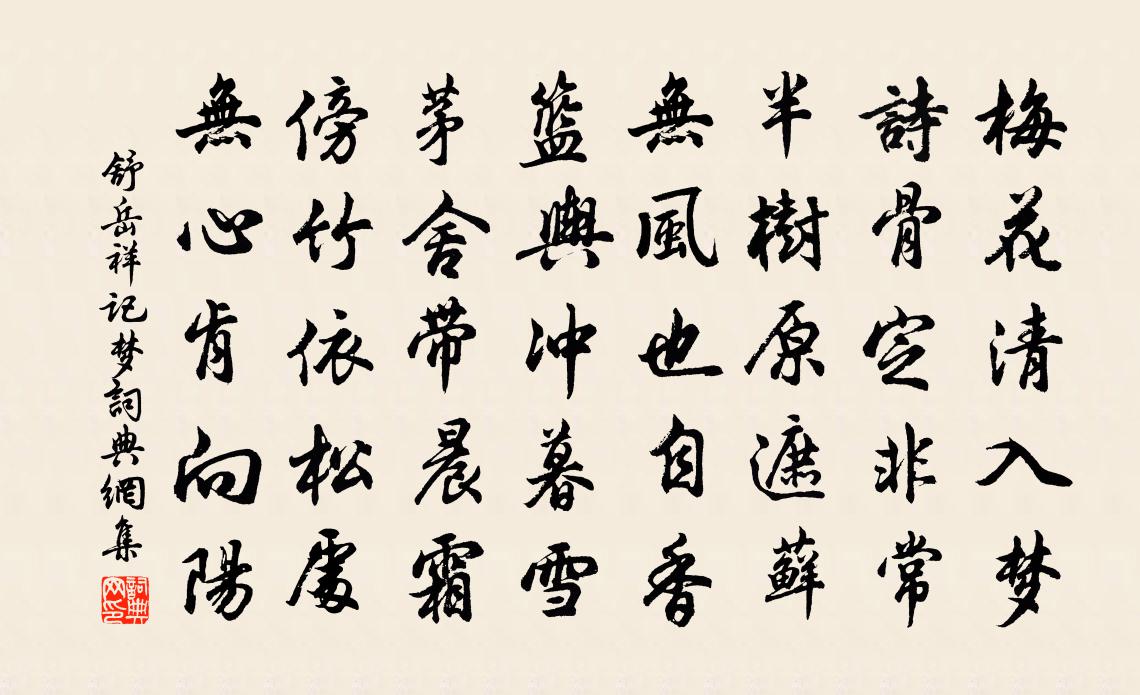 梅花清入梦
詩骨定非常
半樹原遮蘚
無風也自香
籃輿冲暮雪
茅舍帯晨霜
傍竹依松處
無心肯向陽
舒岳祥記梦詞典網集
詞典
网印